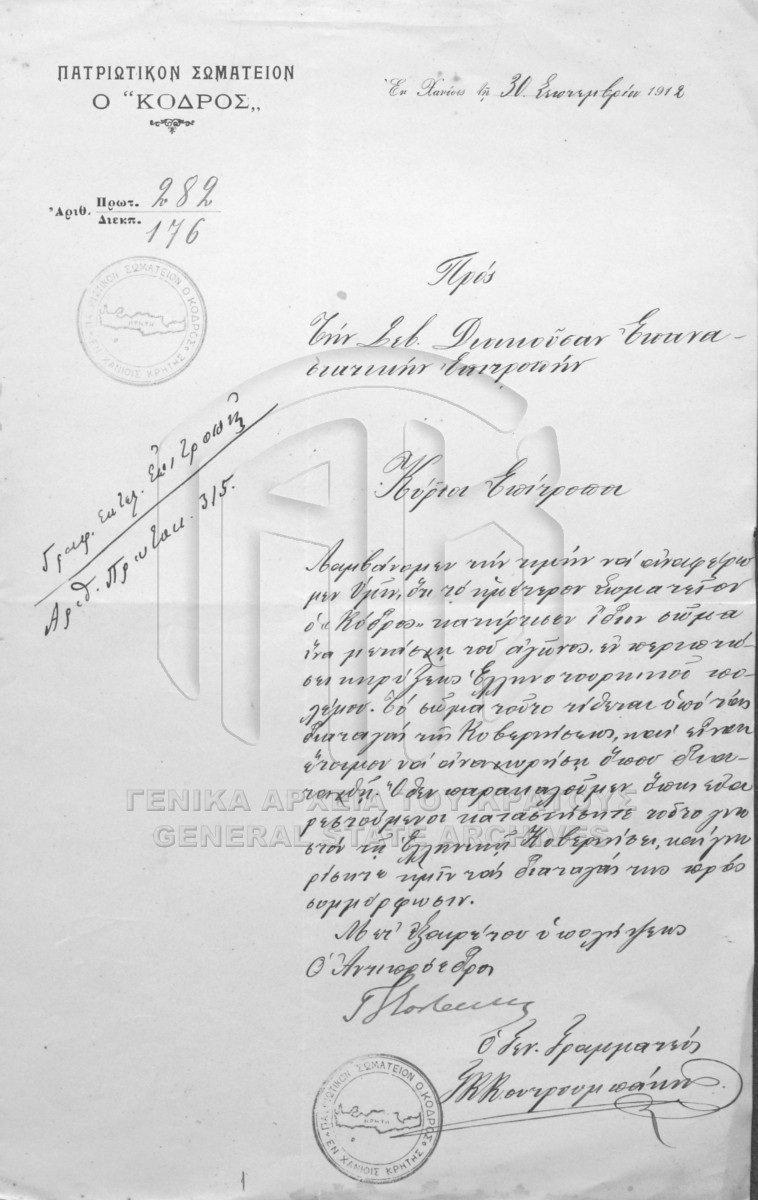 ΠΑΤΡΙΩΤΙΚΟΝ ΣΩΜΑΤΕΙΟΝ
Ο "ΚΟΔΡΟΣ„
Ἐν Χανίοις τῇ 30 Σεπτεμβρίου 1912
Ἀριθ. Πρωτ. 282
Διεκπ. 176
ΠΑΤΡΙΩΤΙΚΟΝ ΣΩΜΑΤΕΙΟΝ Ο ΚΟΔΡΟΣ
ΕΝ ΧΑΝΙΟΙΣ ΚΡΗΤΗΣ
ΚΡΗΤΗ
Πρός
Τήν Σεβ. Διοικοῦσαν Ἐπανα-
στατικήν Ἐπιτροπήν
Γραφ. Εκτελ. Ἐπιτροπῆς
Αριθ. Πρωτοκ. 315.
Κύριοι Ἐπίτροποι
Λαμβάνομεν τήν τιμήν νά ἀναφέρω
μεν Ὑμῖν, ὅτι τό ἡμέτερον σωματεῖον
ὁ "Κόδρος" κατήρτισεν ἴδιον σῶμα
ἵνα μετάσχῃ τοῦ ἀγῶνος, ἐν περιπτώ-
σει κηρύξεως Ἑλληνοτουρκικοῦ πο-
λέμου. Τό σῶμα τοῦτο τίθεται ὑπό τάς
διαταγάς τῆς Κυβερνήσεως, καί εἶναι
ἕτοιμον νά ἀναχωρήσῃ ὅπου δια-
ταχθῇ. Ὅθεν παρακαλοῦμεν ὅπως εὐα
ρεστούμενοι καταστήσητε τοῦτο γνω
στόν τῇ Ἑλληνικῇ Κυβερνήσει, καί γνω
ρίσητε ἡμῖν τάς διαταγάς της πρός
συμμόρφωσιν.
Μετ' ἐξαιρέτου ὑπολήψεως
Ὁ Ἀντιπρόεδρος
Ὁ Γεν. Γραμματεύς
Κουτρουμπάκης
ΠΑΤΡΙΩΤΙΚΟΝ ΣΩΜΑΤΕΙΟΝ Ο ΚΟΔΡΟΣ
ΕΝ ΧΑΝΙΟΙΣ ΚΡΗΤΗΣ
ΚΡΗΤΗ
ΓΕΝΙΚΑ ΑΡΧΕΙΑ ΤΟΥ ΚΡΑΤΟΥΣ
GENERAL STATE ARCHIVES
1